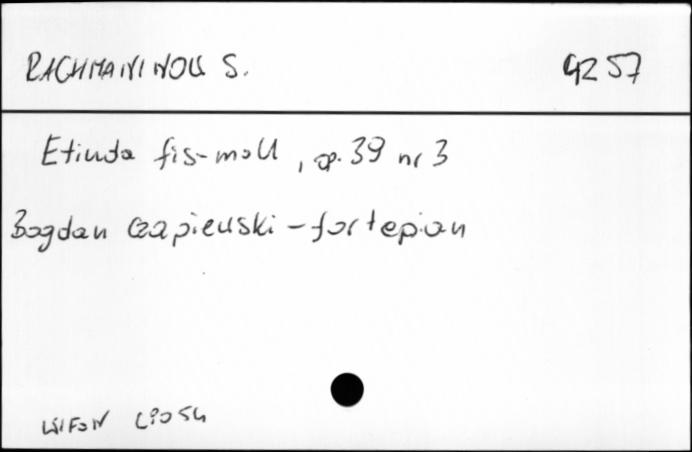 RACHMANINOW S. 4257
Etiuda fis-moll, op. 39 nr 3
Bogdan Czapiewski - fortepian
WIFON LP054